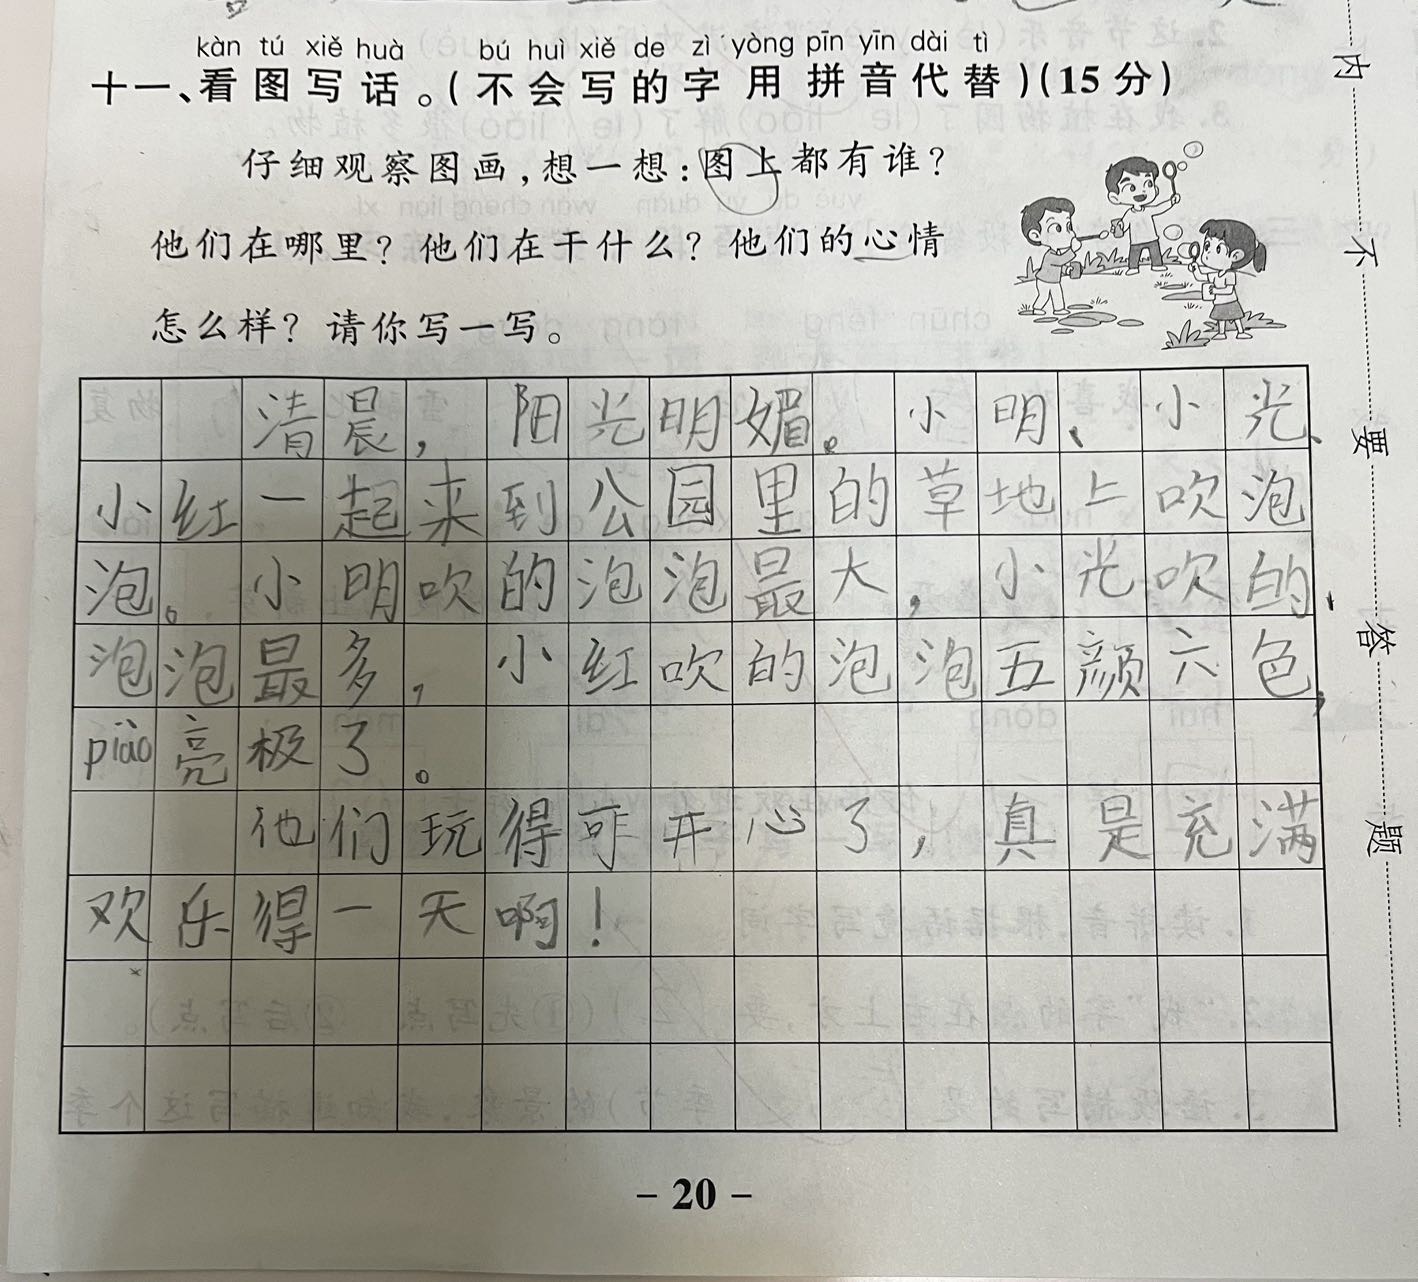 kàn tú xiě huà bú huì xiě de zì yòng pīn yīn dài tì
十一、看图写话。(不会写的字用拼音代替)(15分)
仔细观察图画,想一想:图上都有谁?
他们在哪里?他们在干什么?他们的心情
怎么样?请你写一写。
清晨,阳光明媚。小明、小光、
小红一起来到公园里的草地上吹泡
泡。小明吹的泡泡最大,小光吹的
泡泡最多,小红吹的泡泡五颜六色,
piào亮极了。
他们玩得可开心了,真是充满
欢乐得一天啊!
- 20 -
内不要答题